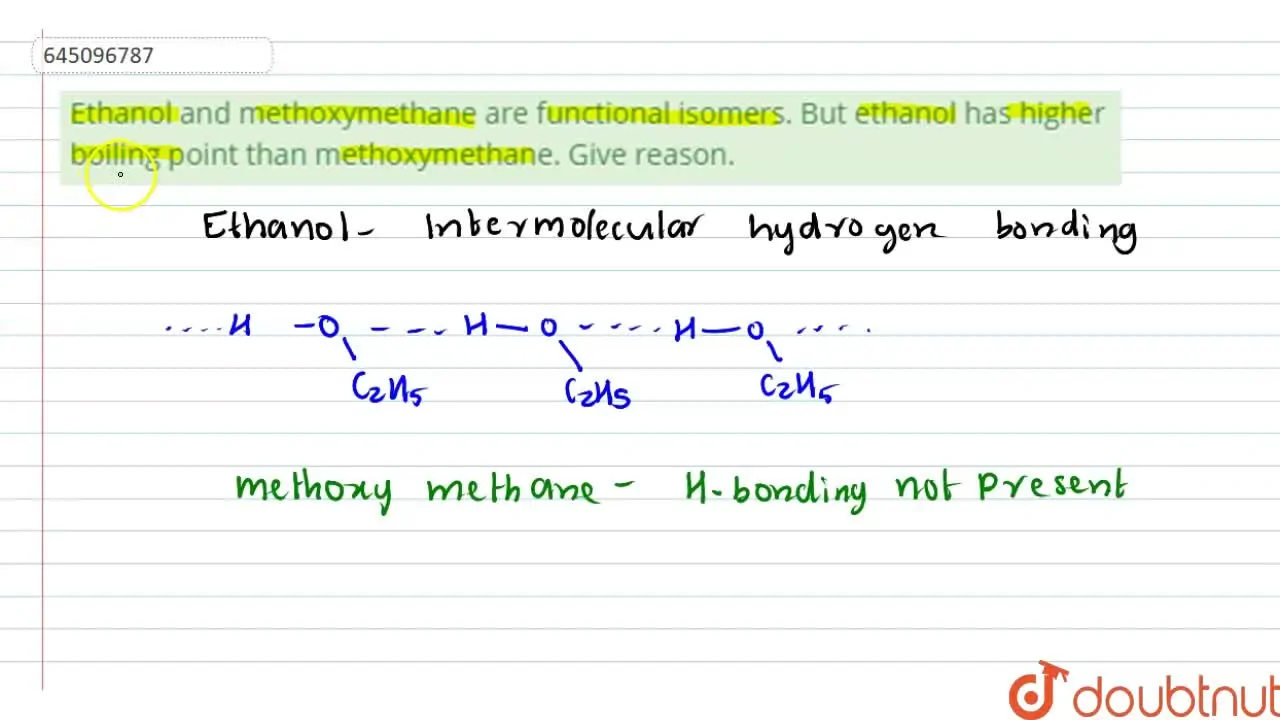 645096787
Ethanol and methoxymethane are functional isomers. But ethanol has higher
boiling point than methoxymethane. Give reason.
Ethanol - Intermolecular hydrogen bonding
.....H -O ---- H-O ----- H-O .....
C₂H₅ C₂H₅ C₂H₅
methoxy methane - H-bonding not present
doubtnut